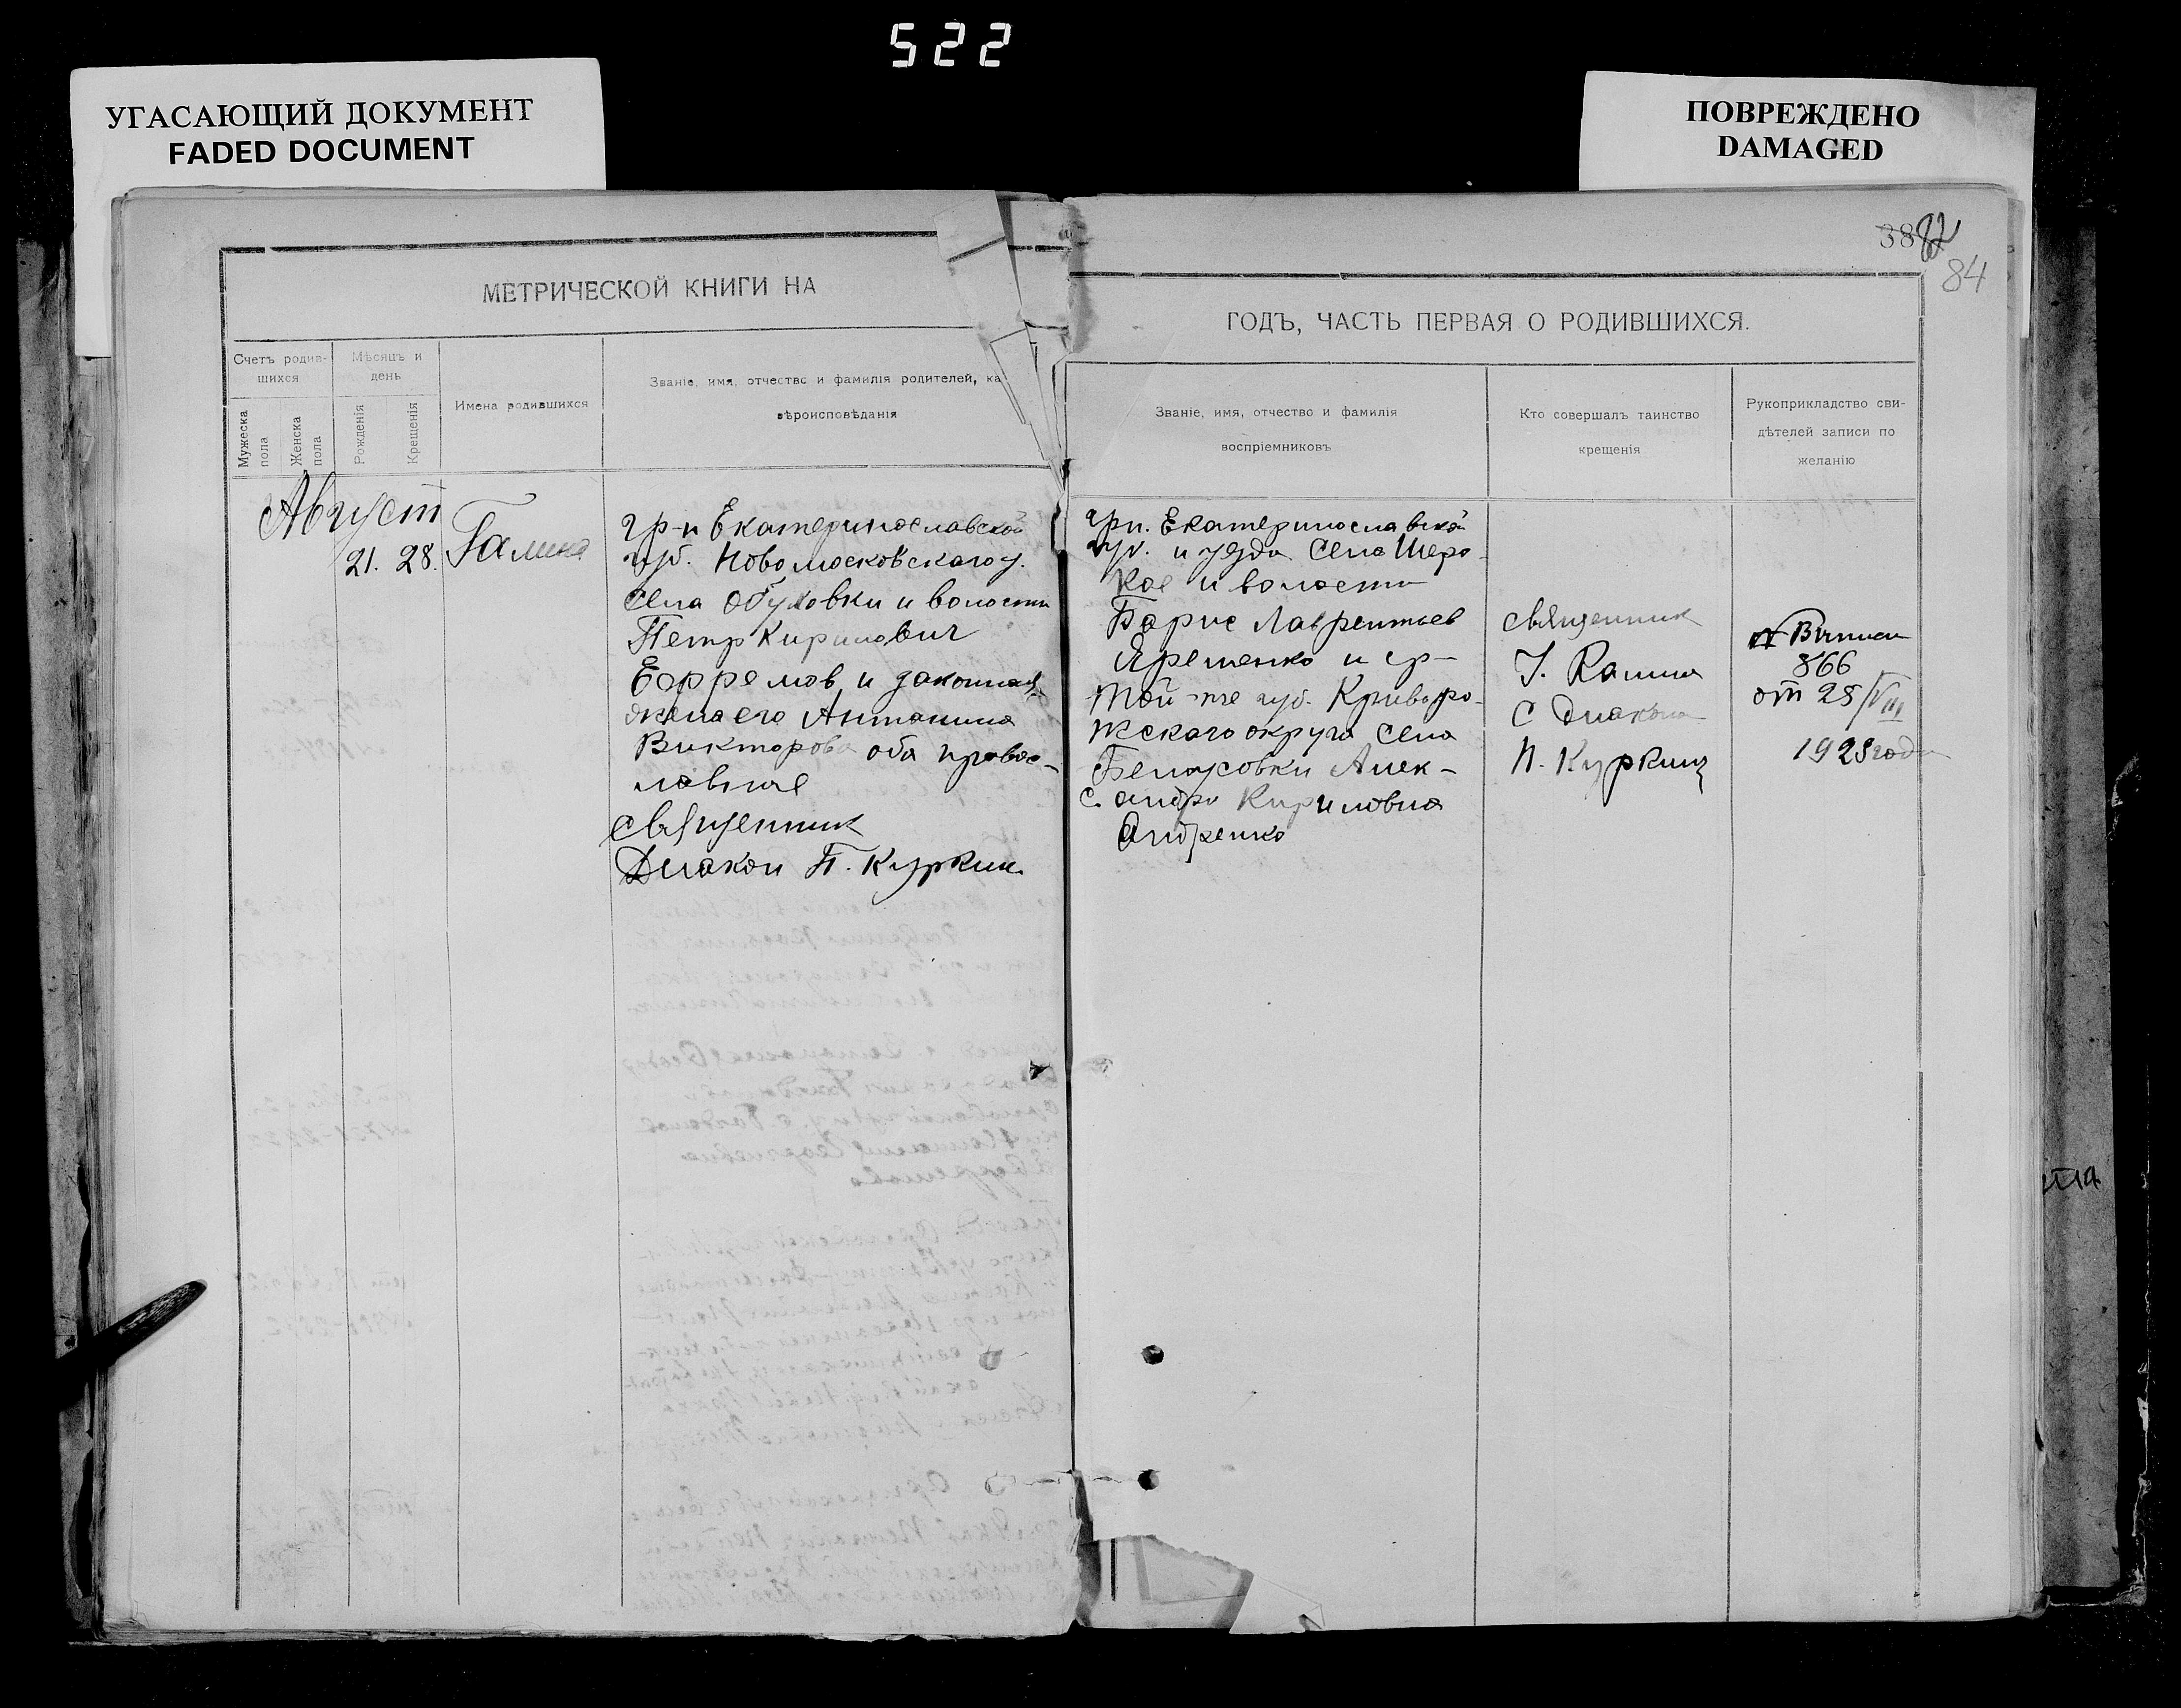 522
УГАСАЮЩИЙ ДОКУМЕНТ
FADED DOCUMENT
ПОВРЕЖДЕНО
DAMAGED
38 82
84
МЕТРИЧЕСКОЙ КНИГИ НА
Счетъ родив-
шихся
Мужеска
пола
Женска
пола
Мѣсяцъ и
день
Рожденія
Крещенія
Имена родившихся
Званіе, имя, отчество и фамилія родителей, ка
вѣроисповѣданія
Август
21. 28.
Галина
гр-н Екатеринославской
губ. Новомосковскаго у.
села Обуховки и волости
Петр Кирилович
Ефремов и законная
жена его Антонина
Викторова оба правос-
лавные
священник
Диакон П. Куркин
ГОДЪ, ЧАСТЬ ПЕРВАЯ О РОДИВШИХСЯ.
Званіе, имя, отчество и фамилія
воспріемниковъ
Кто совершалъ таинство
крещенія
Рукоприкладство сви-
дѣтелей записи по
желанію
грн. Екатеринославской
губ. и уезда села Широ-
кое и волости
Борис Лаврентьев
Яременко и гр-
той-же губ. Криворо-
жского округа села
Белоусовки Алек-
сандра Кириловна
Андренко
священник
с диаконом
П. Куркин
866
от 28/VIII
1925 года